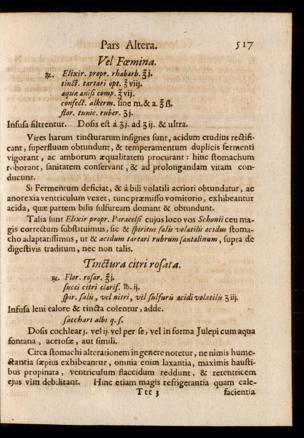 Pars Altera. 517
Vel Fœmina.
℞. Elixir. propr. rhabarb. ℥j.
tinct. tartari opt. ℥viij.
aquæ anisi comp. ℥vij.
confect. alkerm. sine m. & a. ℥ß.
flor. tunic. ruber. ʒj.
Infusa filtrentur. Dosis est à ʒj. ad ʒij. & ultra.
Vires harum tincturarum insignes sunt, acidum crudius rectifi-
cant, superfluum obtundunt, & temperamentum duplicis fermenti
vigorant, ac amborum æqualitatem procurant: hinc stomachum
roborant, sanitatem conservant, & ad prolongandam vitam con-
ducunt.
Si Fermentum deficiat, & à bili volatili acriori obtundatur, ac
anorexia ventriculum vexet, tunc præmisso vomitorio, exhibeantur
acida, quæ partem bilis sulfuream domant & obtundunt.
Talia sunt Elixir propr. Paracelsi cujus loco vos Schonii ceu ma-
gis correctum substituimus, sic & spiritus salis volatilis acidus stoma-
cho adaptatissimus, ut & acidum tartari rubrum santalinum, supra de
digestivis traditum, nec non talis.
Tinctura citri rosata.
℞. Flor. rosar. ℥j.
succi citri clarif. lb. ij.
spir. salis, vel nitri, vel sulfuris acidi volatilis ʒiij.
Infusa leni calore & tincta colentur, adde.
sacchari albi q. s.
Dosis cochlearj. vel ij. vel per se, vel in forma Julepi cum aqua
fontana, acetosæ, aut simili.
Circa stomachi alterationem in genere notetur, ne nimis hume-
ctantia sæpius exhibeantur, omnia enim laxantia, maximis hausti-
bus propinata, ventriculum flaccidum reddunt, & retentricem
ejus vim debilitant. Hinc etiam magis refrigerantia quam cale-
Ttt 3 facientia